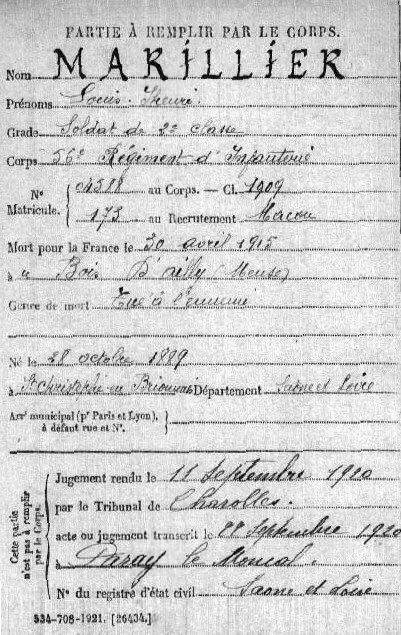 PARTIE À REMPLIR PAR LE CORPS.
Nom MARILLIER
Prénoms Louis Henri
Grade Soldat de 2e classe
Corps 56e Régiment d'Infanterie
No Matricule.
au Corps. — Cl. 1909
173 au Recrutement Macon
Mort pour la France le 30 avril 1915
à Bois D'ailly (Meuse)
Genre de mort Tué à l'ennemi
Né le 28 octobre 1889
à St Christophe en Brionnais Département Saône et Loire
Arrt municipal (pr Paris et Lyon), à défaut rue et No.
Cette partie n'est pas à remplir par le Corps.
Jugement rendu le 11 Septembre 1920
par le Tribunal de Charolles.
acte ou jugement transcrit le 22 Septembre 1920
à Paray le Monial.
No du registre d'état civil Saone et Loire
534-708-1921. [26434.]